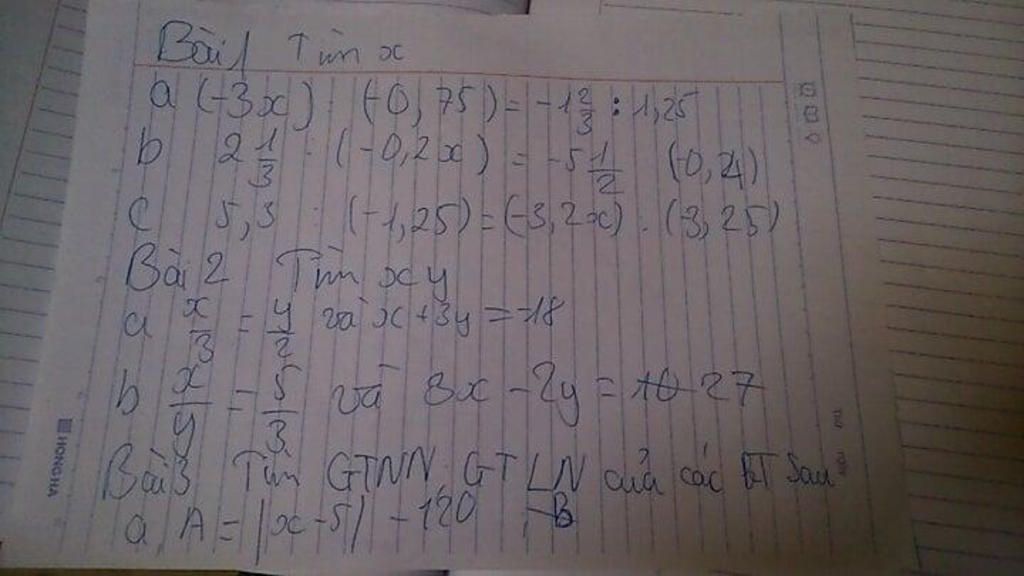 Bài 1 Tìm x
a (-3x) : (-0,75) = -1 2/3 : 1,25
b 2 1/3 : (-0,2x) = -5 1/2 (-0,4)
c 5,3 : (-1,25) = (-3,2x) : (-3,25)
Bài 2 Tìm x y
a x/3 = y/2 và x + 3y = -18
b x/y = 5/3 và 3x - 2y = 27
Bài 3 Tìm GTNN, GTLN của các BT sau
a, A = |x - 5| - 120
HONGHA